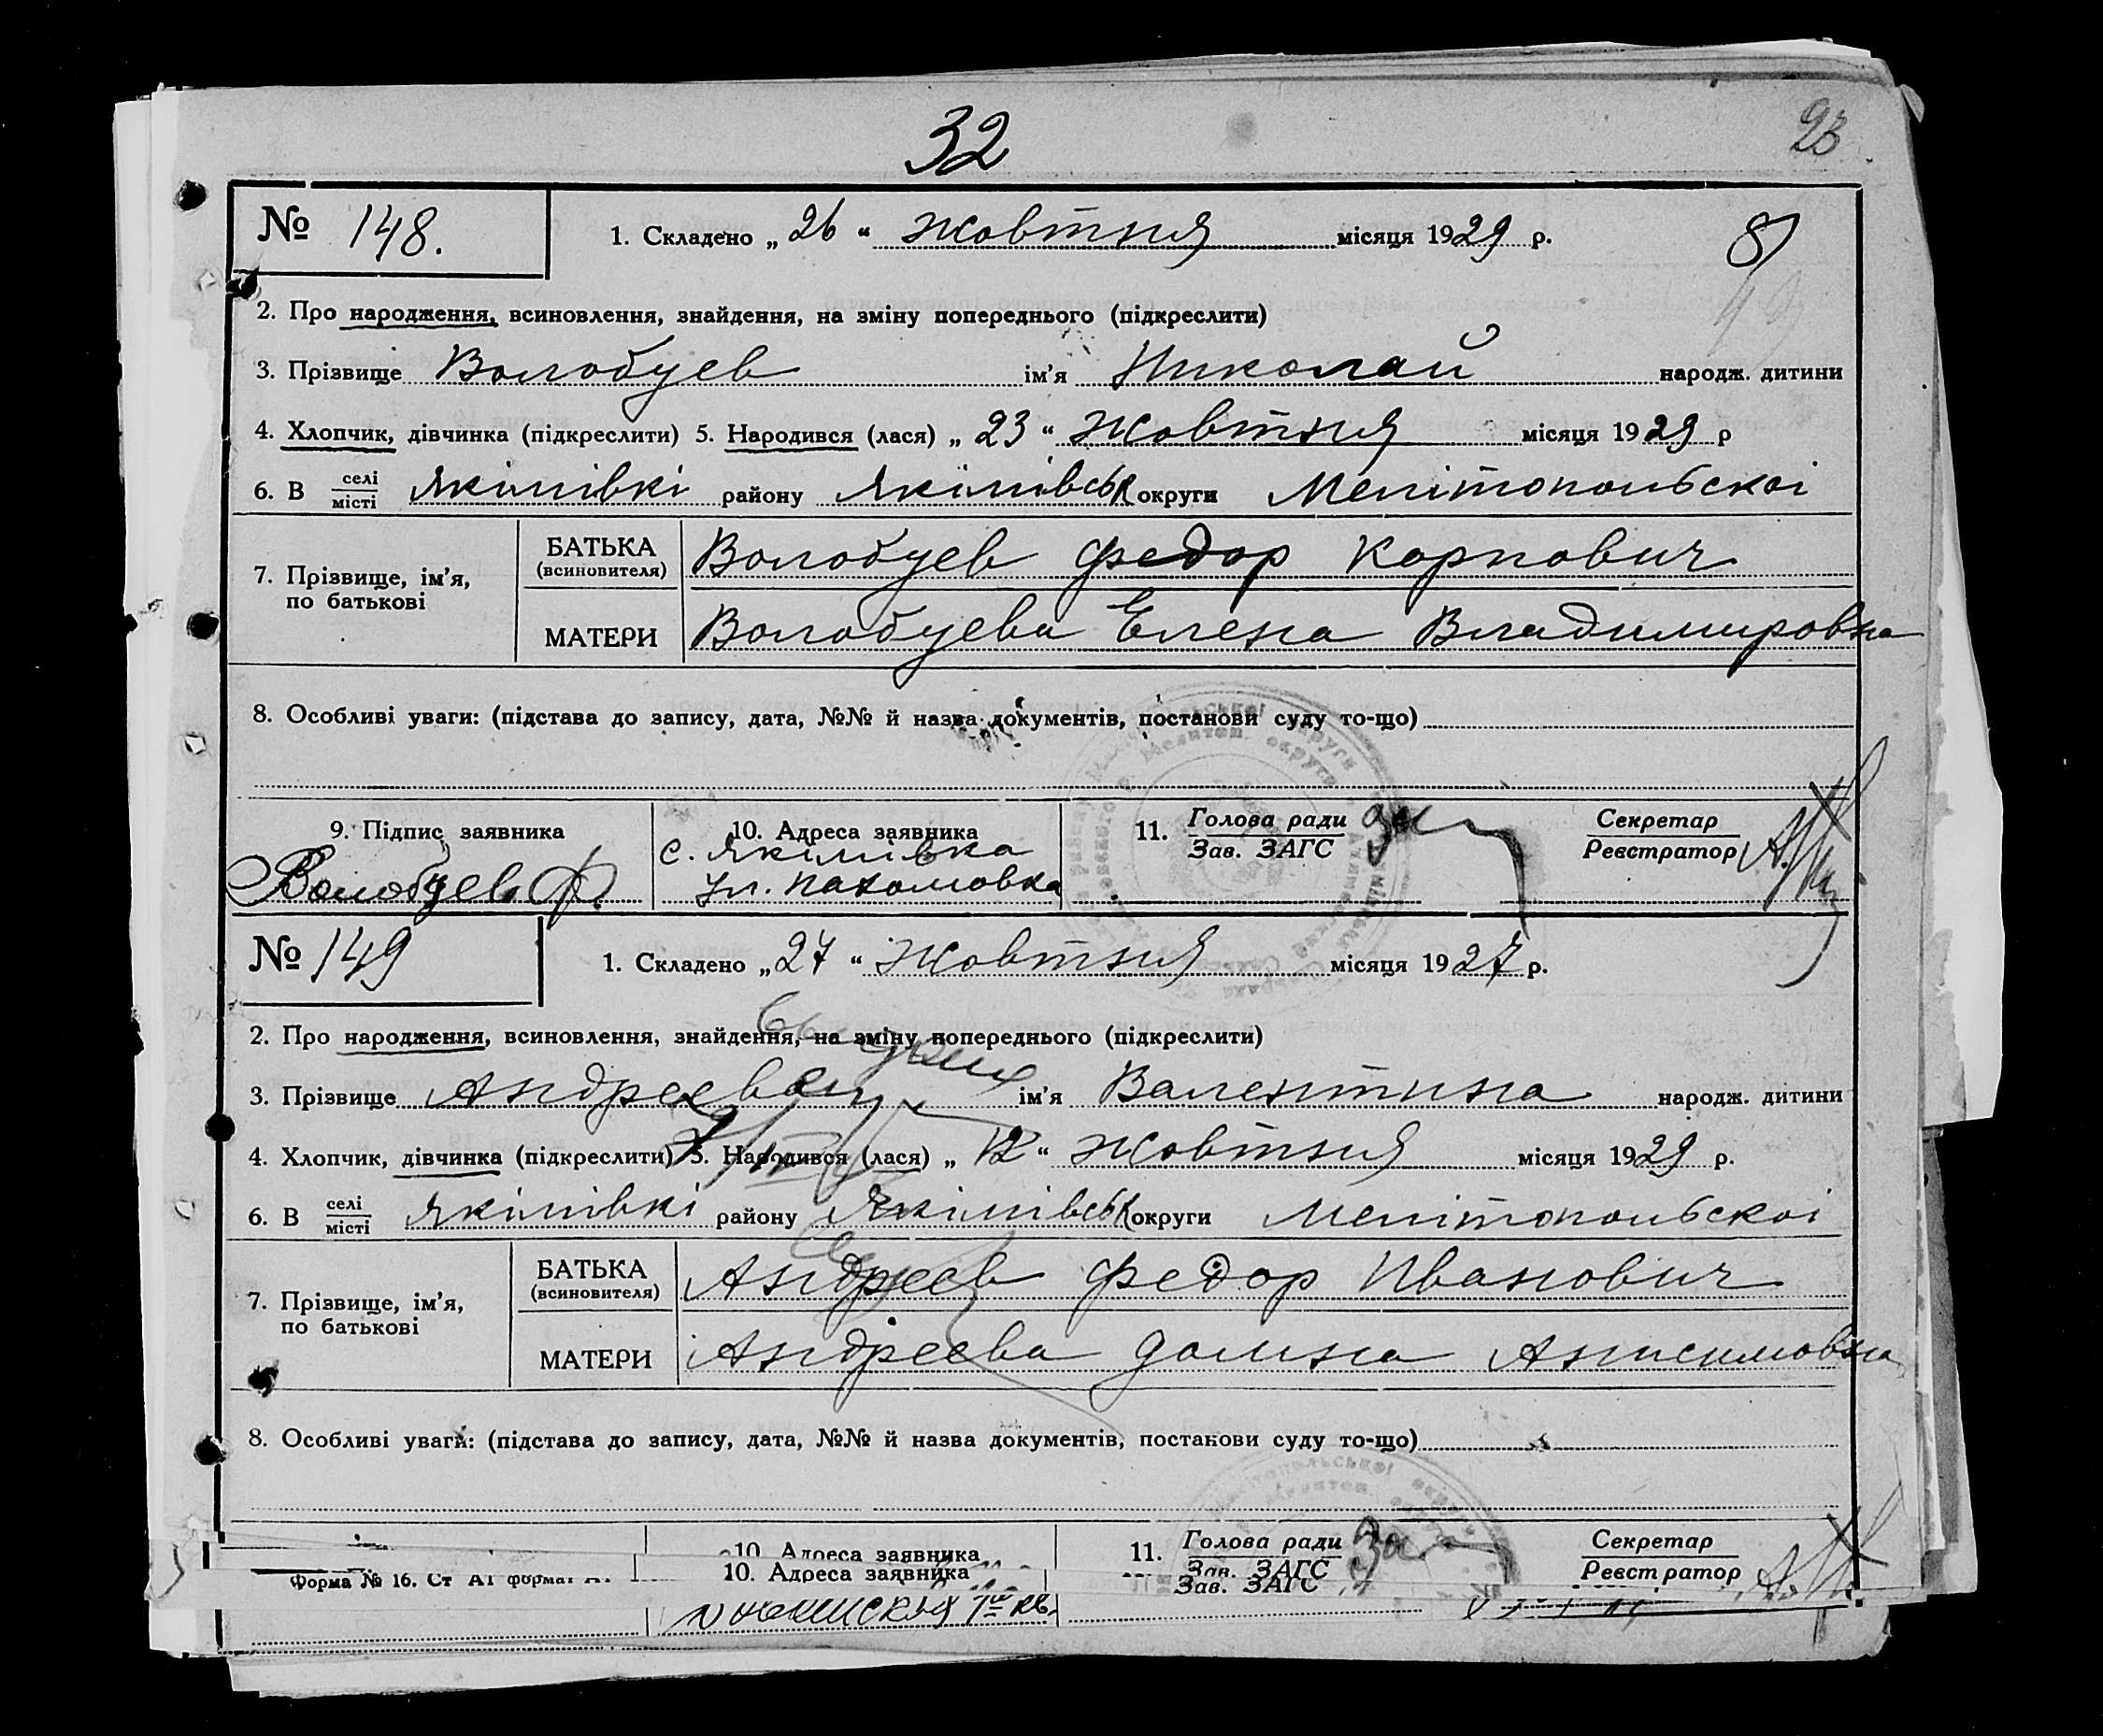 32
93
№ 148.
1. Складено „ 26 “ жовтня місяця 1929 р.
2. Про народження, всиновлення, знайдення, на зміну попереднього (підкреслити)
3. Прізвище Волобуев ім'я Николай народж. дитини
4. Хлопчик, дівчинка (підкреслити) 5. Народився (лася) „ 23 “ жовтня місяця 1929 р
6. В селі місті Якімівкі району Якімівськ округи Мелітопольскоі
7. Прізвище, ім'я, по батькові
БАТЬКА (всиновителя) Волобуев Федор Карпович
МАТЕРИ Волобуева Елена Владимировна
8. Особливі уваги: (підстава до запису, дата, №№ й назва документів, постанови суду то-що)
9. Підпис заявника
Волобуев Ф.
10. Адреса заявника
с. Якімівка
ул. Пахомовка
11. Голова ради
Зав. ЗАГС
Секретар
Реєстратор
№ 149
1. Складено „ 27 “ жовтня місяця 1927 р.
2. Про народження, всиновлення, знайдення, на зміну попереднього (підкреслити)
3. Прізвище Андреева ім'я Валентина народж. дитини
4. Хлопчик, дівчинка (підкреслити) 5. Народився (лася) „ 12 “ жовтня місяця 1929 р.
6. В селі місті Якімівкі району Якімівськ округи Мелітопольскоі
7. Прізвище, ім'я, по батькові
БАТЬКА (всиновителя) Андреев Федор Иванович
МАТЕРИ Андреева Домна Анисимовна
8. Особливі уваги: (підстава до запису, дата, №№ й назва документів, постанови суду то-що)
10. Адреса заявника
11. Голова ради
Зав. ЗАГС
Секретар
Реєстратор
Форма № 16. Ст А1 формат
10. Адреса заявника
Зав. ЗАГС